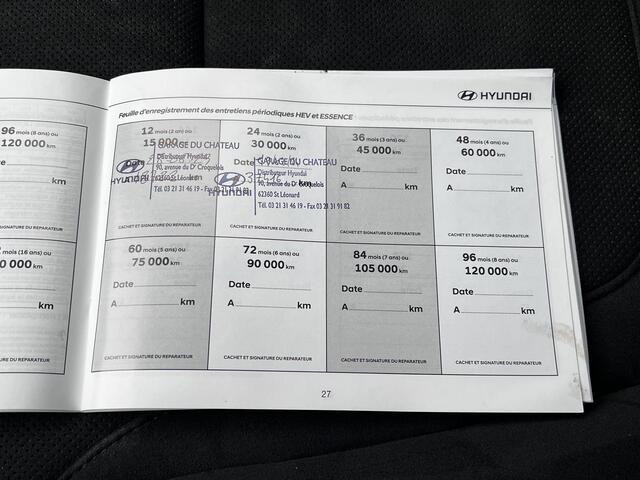 HYUNDAI
Feuille d'enregistrement des entretiens périodiques HEV et ESSENCE
96 mois (8 ans) ou
120 000 km
km
CACHET ET SIGNATURE DU REPARATEUR
(16 ans) ou
0 000 km
km
CACHET ET SIGNATURE DU REPARATEUR
12 mois (2 ans) ou
15 000
Date
GARAGE DU CHATEAU
Distributeur Hyundai
90, avenue du Dr Croquelois
62360 St Léonard
Tél. 03 21 31 46 19 - Fax 03 21 31 91 82
HYUNDAI
CACHET ET SIGNATURE DU REPARATEUR
24 mois (2 ans) ou
30 000 km
Date
GARAGE DU CHATEAU
Distributeur Hyundai
90, avenue du Dr Croquelois
62360 St Léonard
Tél. 03 21 31 46 19 - Fax 03 21 31 91 82
HYUNDAI
km
CACHET ET SIGNATURE DU REPARATEUR
36 mois (3 ans) ou
45 000 km
Date
A km
CACHET ET SIGNATURE DU REPARATEUR
48 mois (4 ans) ou
60 000 km
Date
A km
CACHET ET SIGNATURE DU REPARATEUR
60 mois (5 ans) ou
75 000 km
Date
A km
CACHET ET SIGNATURE DU REPARATEUR
72 mois (6 ans) ou
90 000 km
Date
A km
CACHET ET SIGNATURE DU REPARATEUR
84 mois (7 ans) ou
105 000 km
Date
A km
CACHET ET SIGNATURE DU REPARATEUR
96 mois (8 ans) ou
120 000 km
Date
A km
CACHET ET SIGNATURE DU REPARATEUR
27